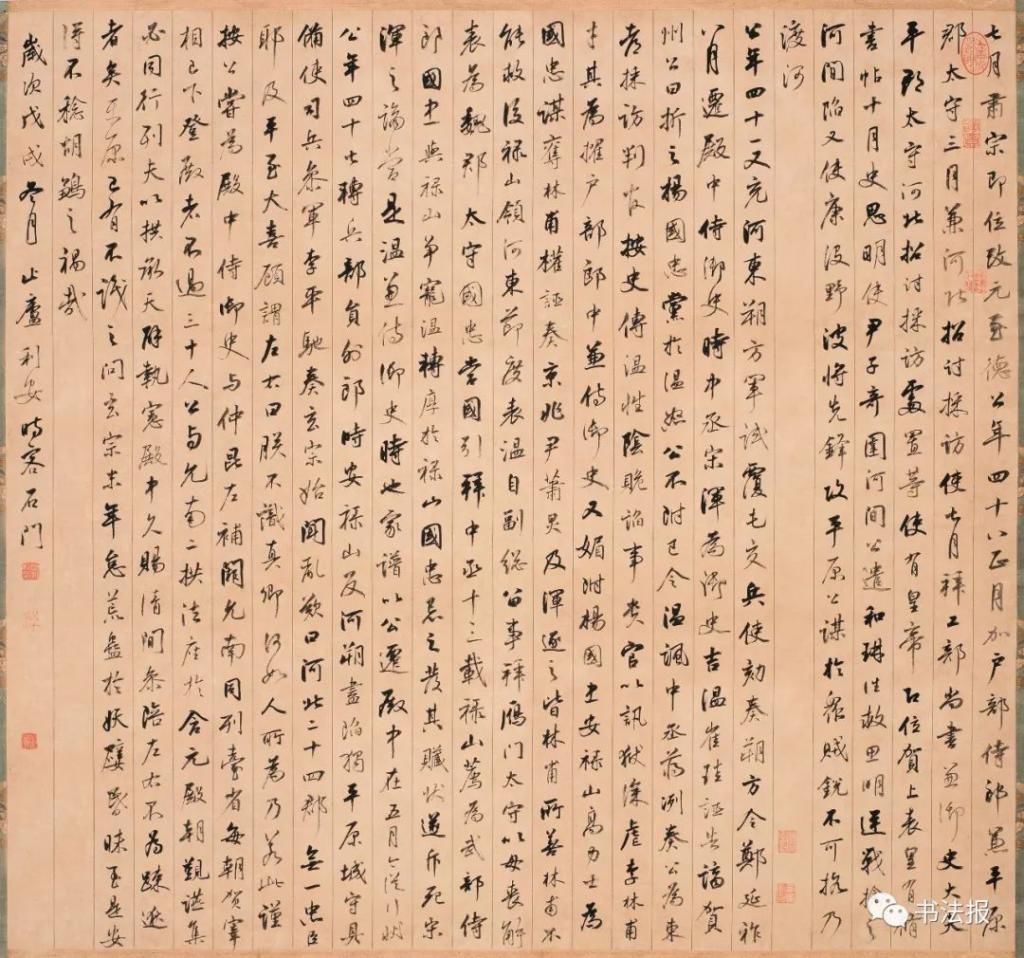 七月肃宗即位改元至德公年四十八正月加户部侍郎兼平原
郡太守三月兼河北招讨採访使七月拜工部尚書兼御史大夫
平郡太守河北招讨採访處置等使有皇帝即位賀上表皇有脩
書帖十月史思明使尹子奇圍河间公遣和琳往救思明逆戰擒之
河间陷又使康没野波将先鋒攻平原公謀於衆贼銳不可抗乃
渡河
公年四十一又充河東朔方軍試覆屯交兵使劾奏朔方令鄭延祚
八月遷殿中侍御史時中丞宋渾為御史吉温崔珪誣告謫賀
州公曰折之楊國忠黨於温怒公不附己令温諷中丞蒋冽奏公為東
都採访判官按史傳温性陰詭諂事贵官以訊狱深虐李林甫
才其為擢户部郎中兼侍御史又媚附楊國忠安禄山高力士為
國忠謀奪林甫權誣奏京兆尹蕭炅及渾逐之皆林甫所善林甫不
能救後禄山領河東節度表温自副総留事拜雁门太守以母喪解
表為魏郡太守國忠當國引拜中丞十三載禄山薦為武部侍
郎國忠與禄山争寵温轉厚於禄山國忠忌之發其贓状遂斥死宋
渾之謫當是温兼侍御史時也家譜以公遷殿中在五月今従行状
公年四十七轉兵部員外郎時安禄山反河朔盡陷獨平原城守具
備使司兵参軍李平馳奏玄宗始闻亂歎曰河北二十四郡無一忠臣
耶及平至大喜顾謂左右曰朕不識真卿何如人所為乃若此謹
按公嘗為殿中侍御史与仲昆左補闕允南同列臺省每朝贺宰
相已下登殿者不過三十人公与允南二拱法座於含元殿朝觐讌集
必同行列夫以拱承天辟執憲殿中久赐清闻条陪左右不為疎遠
者矣平原已有不識之问玄宗末年怠荒蛊於妖孽昏昧至是安
得不稔胡鷄之禍哉
歲次戊戌冬月止廬利安時客石门
书法报